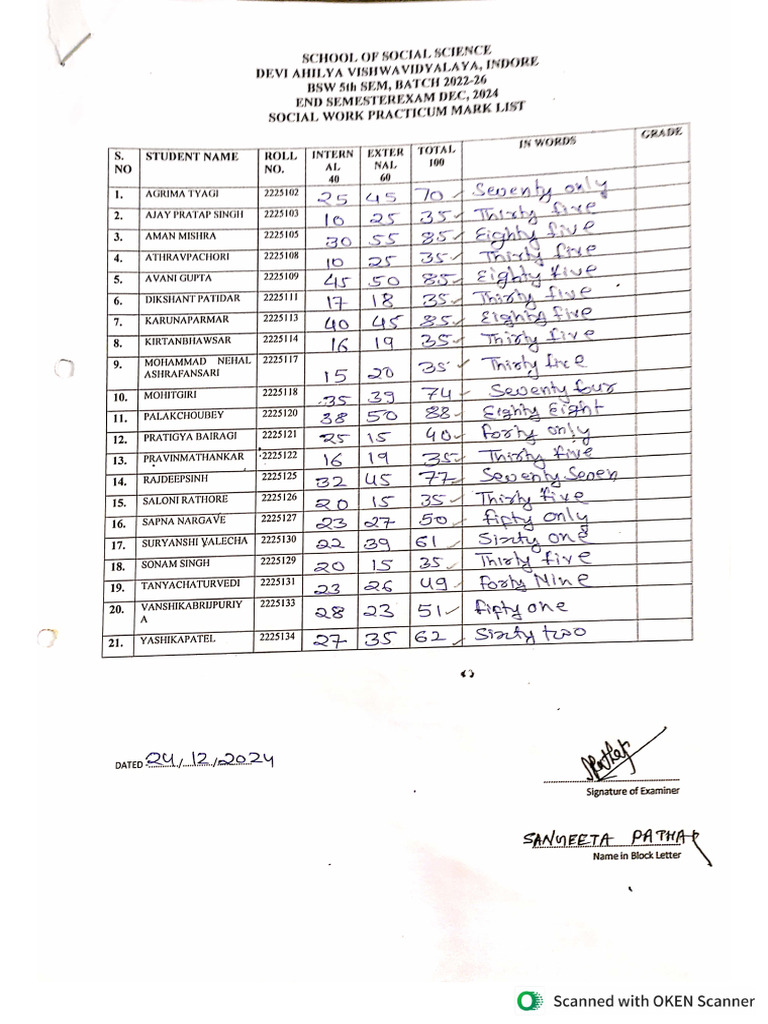 SCHOOL OF SOCIAL SCIENCE
DEVI AHILYA VISHWAVIDYALAYA, INDORE
BSW 5th SEM, BATCH 2022-26
END SEMESTEREXAM DEC, 2024
SOCIAL WORK PRACTICUM MARK LIST
S. NO STUDENT NAME ROLL NO. INTERNAL 40 EXTERNAL 60 TOTAL 100 IN WORDS GRADE
1. AGRIMA TYAGI 2225102 25 45 70 Seventy only
2. AJAY PRATAP SINGH 2225103 10 25 35 Thirty five
3. AMAN MISHRA 2225105 30 55 85 Eighty five
4. ATHRAVPACHORI 2225108 10 25 35 Thirty five
5. AVANI GUPTA 2225109 45 50 85 Eighty five
6. DIKSHANT PATIDAR 2225111 17 18 35 Thirty five
7. KARUNAPARMAR 2225113 40 45 85 Eighty five
8. KIRTANBHAWSAR 2225114 16 19 35 Thirty five
9. MOHAMMAD NEHAL ASHRAFANSARI 2225117 15 20 35 Thirty five
10. MOHITGIRI 2225118 35 39 74 Seventy four
11. PALAKCHOUBEY 2225120 38 50 88 Eighty Eight
12. PRATIGYA BAIRAGI 2225121 25 15 40 forty only
13. PRAVINMATHANKAR 2225122 16 19 35 Thirty five
14. RAJDEEPSINH 2225125 32 45 77 Seventy Seven
15. SALONI RATHORE 2225126 20 15 35 Thirty five
16. SAPNA NARGAVE 2225127 23 27 50 fifty only
17. SURYANSHI VALECHA 2225130 22 39 61 Sixty one
18. SONAM SINGH 2225129 20 15 35 Thirty five
19. TANYACHATURVEDI 2225131 23 26 49 forty Nine
20. VANSHIKABRIJPURIYA 2225133 28 23 51 fifty one
21. YASHIKAPATEL 2225134 27 35 62 Sixty two
DATED 24/12/2024
Signature of Examiner
SANGEETA PATHAK
Name in Block Letter
Scanned with OKEN Scanner